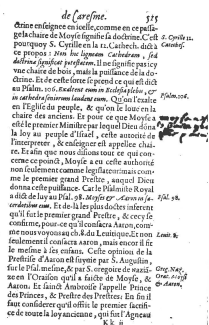 de Caresme. 515
ctrine enseignee en icelle, comme en ce passage
la chaire de Moyse signifie sa doctrine. C'est
pourquoy S. Cyrille en la 12. Cathech. dict à
ce propos : Non hic ligneam Cathedram, sed
doctrinæ significat potestatem. Il ne signifie pas icy
vne chaire de bois, mais la puissance de la do-
ctrine. Et de cette sorte se prend ce qui est dict
au Psal. 106. Exaltent eum in Ecclesia plebis, &
in cathedra seniorum laudent eum. Qu'on l'exalte
en l'Eglise du peuple, & qu'on le loue en la
chaire des anciens. Et pour ce que Moyse a
esté le premier Ministre par lequel Dieu donna
la loy au peuple d'Israel, cette authorité de
l'interpreter, & enseigner est appellee chai-
re. Et afin que nous disions tout ce qui con-
cerne ce poinct, Moyse a eu cette authorité
non seulement comme legislateur, mais com-
me le premier grand Prestre, auquel Dieu
donna cette puissance. Car le Psalmiste Royal
a dict de luy au Psal. 98. Moyses & Aaron in sa-
cerdotibus eum. Et de là les plus doctes inferent
qu'il fut le premier grand Prestre, & cecy se
confirme, pour-ce qu'il consacra Aaron, com-
me nous voyons au ch. 8. du Leuitique. Et non
seulement il consacra Aaron, mais encor il fit
le mesme à ses enfans. Cette opinion de la
Prestrise d'Aaron est suyuie par S. Augustin,
sur le Psal. mesme, & par S. Gregoire de Nazian-
ze en l'Oraison qu'il a faicte de Moyse, &
Aaron. Et sainct Ambroise l'appelle Prince
des Princes, & Prestre des Prestres: En fin il
faut considerer qu'il offrit le premier sacrifi-
ce de toute la loy ancienne, qui fut l'Agneau
Kk ij
S. Cyrille 12.
Cathech.
Psalm. 106.
Psal. 98.
Leuit. 8.
Greg. Naz.